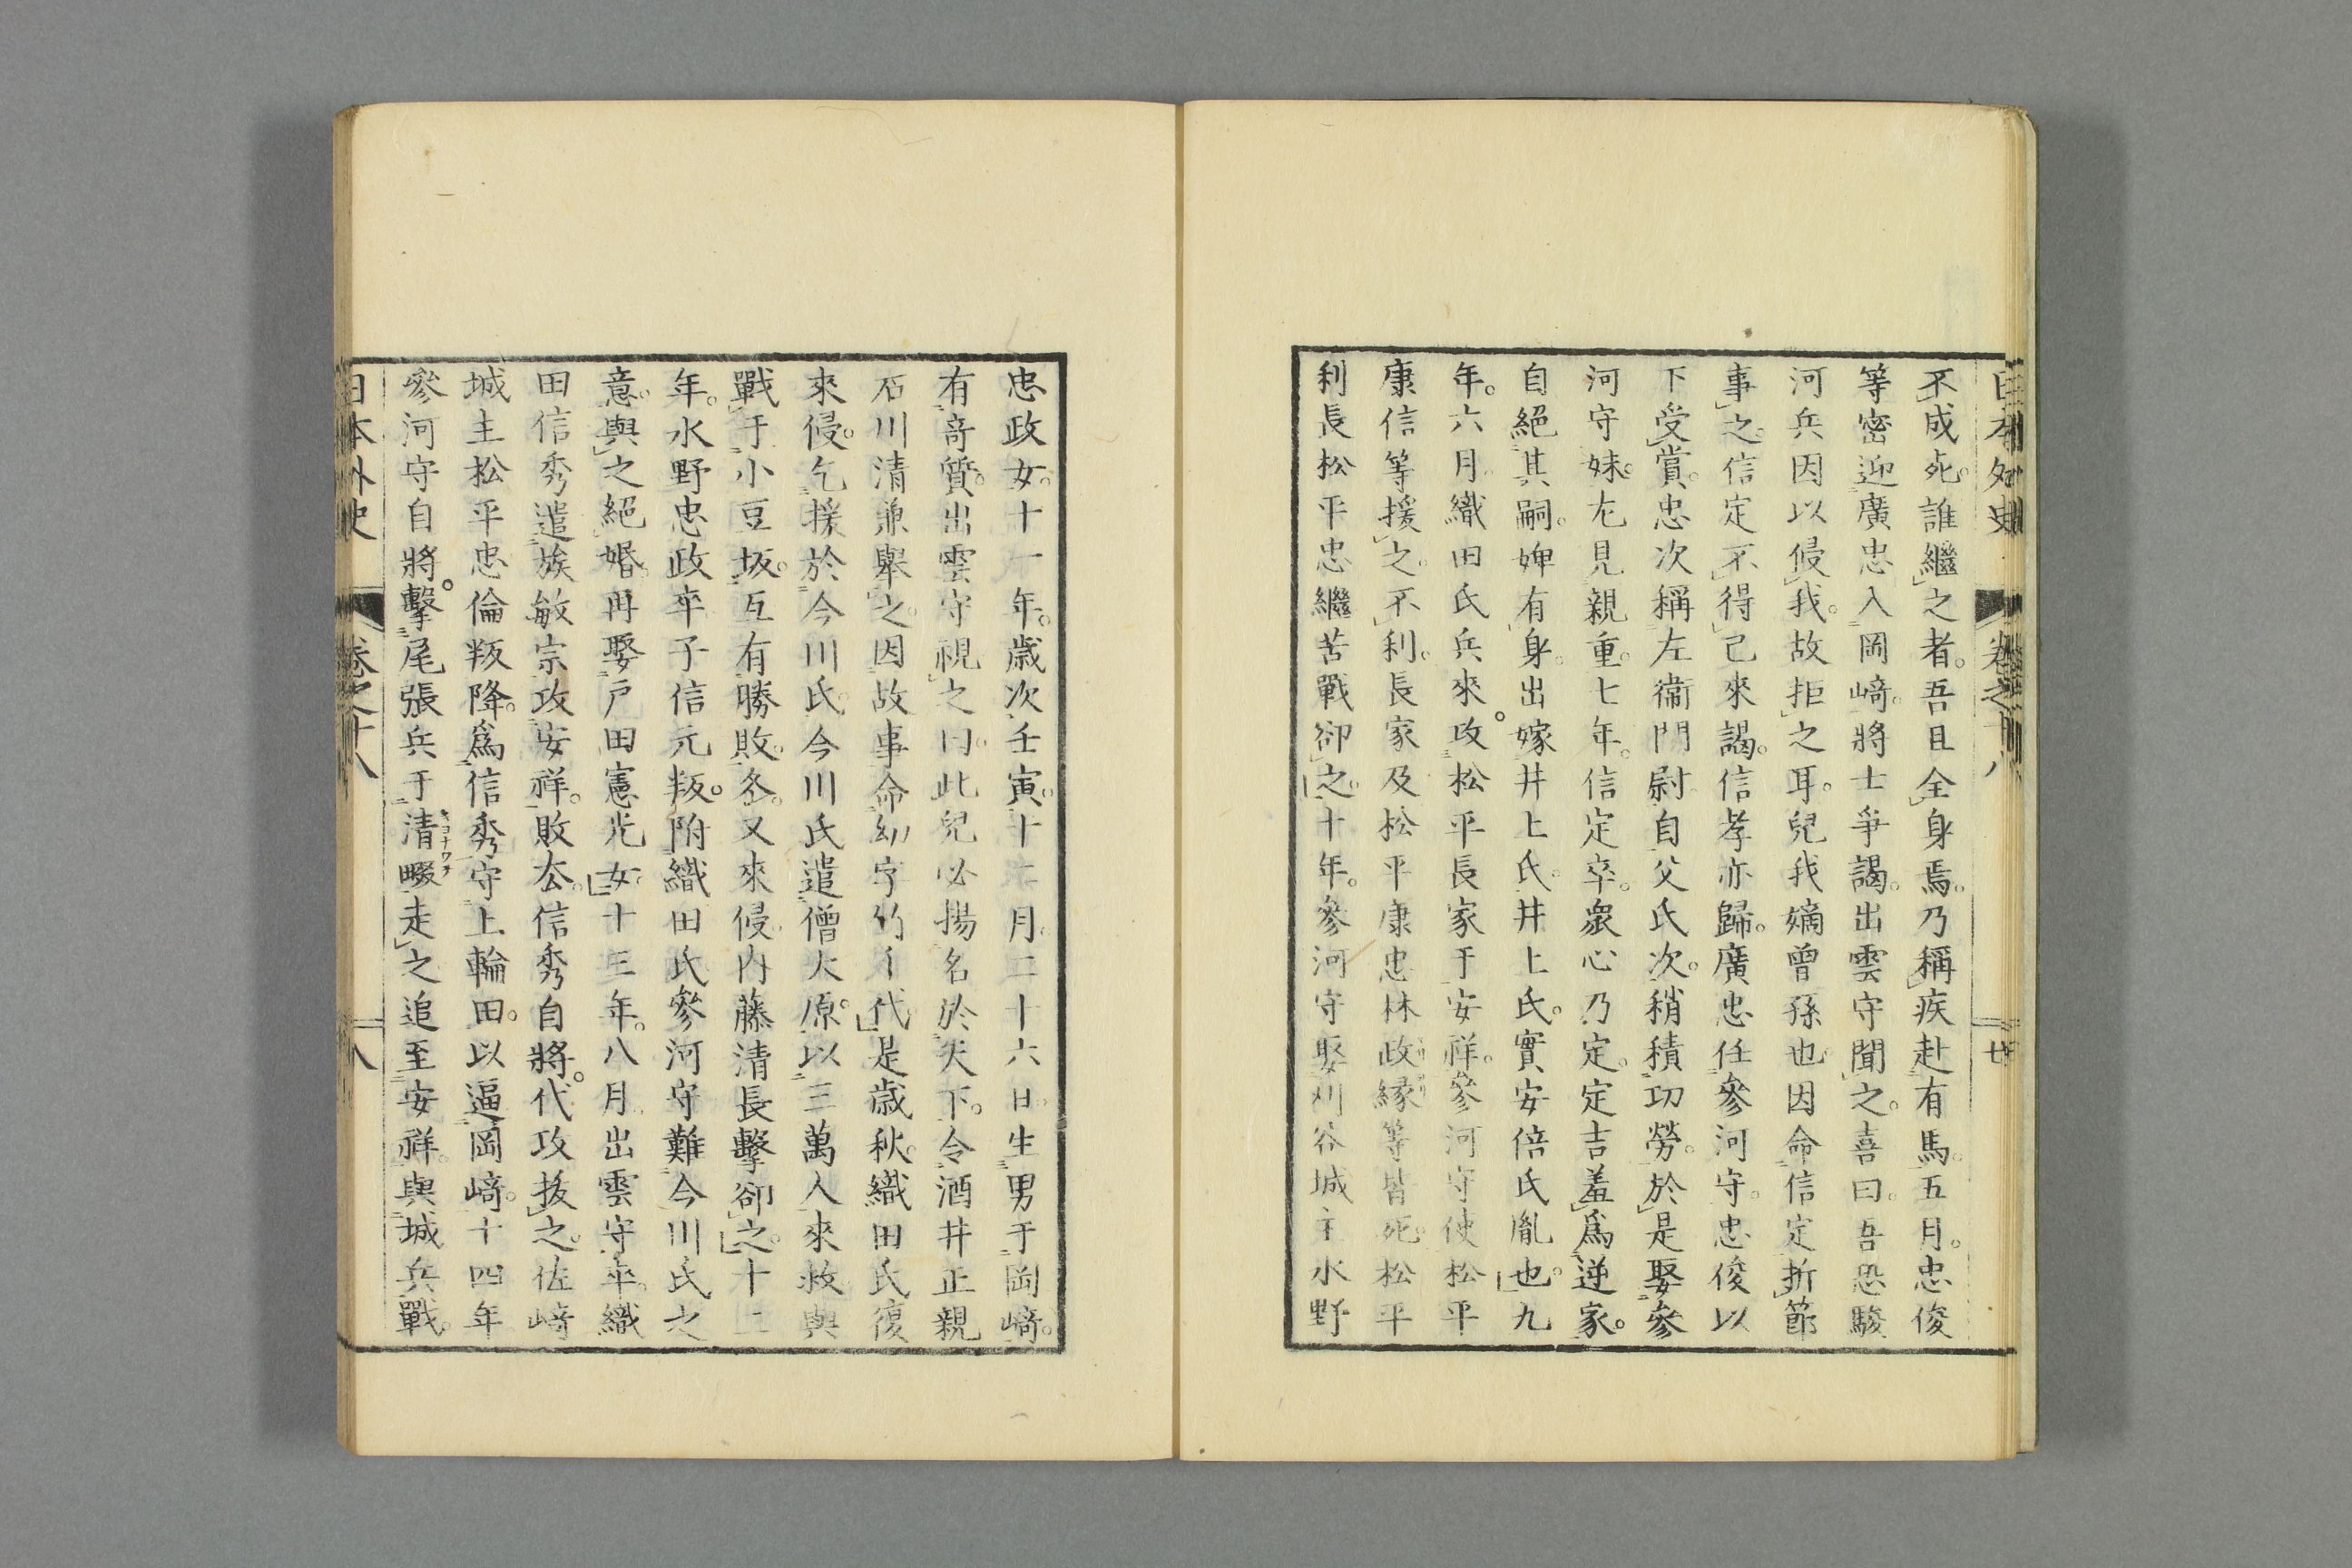 日本外史 卷之十八 七
不成死。誰繼之者。吾且全身焉。乃稱疾赴有馬。五月。忠俊
等密迎廣忠入岡﨑。將士爭謁。出雲守聞之。喜曰。吾恐駿
河兵因以侵我。故拒之耳。兒我嫡曾孫也。因命信定折節
事之。信定不得已來謁。信孝亦歸。廣忠任參河守。忠俊以
下受賞。忠次稱左衞門尉。自父氏次。稍積功勞。於是娶參
河守妹。尤見親重。七年。信定卒。衆心乃定。定吉羞爲逆家。
自絕其嗣。婢有身。出嫁井上氏。井上氏。實安倍氏胤也。九
年。六月。織田氏兵來攻松平長家于安祥。參河守使松平
康信等援之。不利。長家及松平康忠林政緣等皆死。松平
利長松平忠繼苦戰卻之。十年。參河守娶刈谷城主水野
忠政女。十一年。歲次壬寅。十二月。二十六日。生男于岡﨑。
有奇質。出雲守視之曰。此兒必揚名於天下。令酒井正親
石川清兼舉之。因故事命幼字竹千代。是歲秋。織田氏復
來侵。乞援於今川氏。今川氏遣僧大原。以三萬人來救。與
戰于小豆坂。互有勝敗。冬。又來侵。內藤清長擊卻之。十二
年。水野忠政卒。子信元叛。附織田氏。參河守難今川氏之
意。與之絕婚。再娶戶田憲光女。十三年。八月。出雲守卒。織
田信秀遣族敏宗攻安祥。敗厺。信秀自將。代攻拔之。佐﨑
城主松平忠倫叛降。爲信秀守上輪田。以逼岡﨑。十四年
參河守自將。擊尾張兵于清畷走之。追至安祥。與城兵戰。
日本外史 卷之十八 八